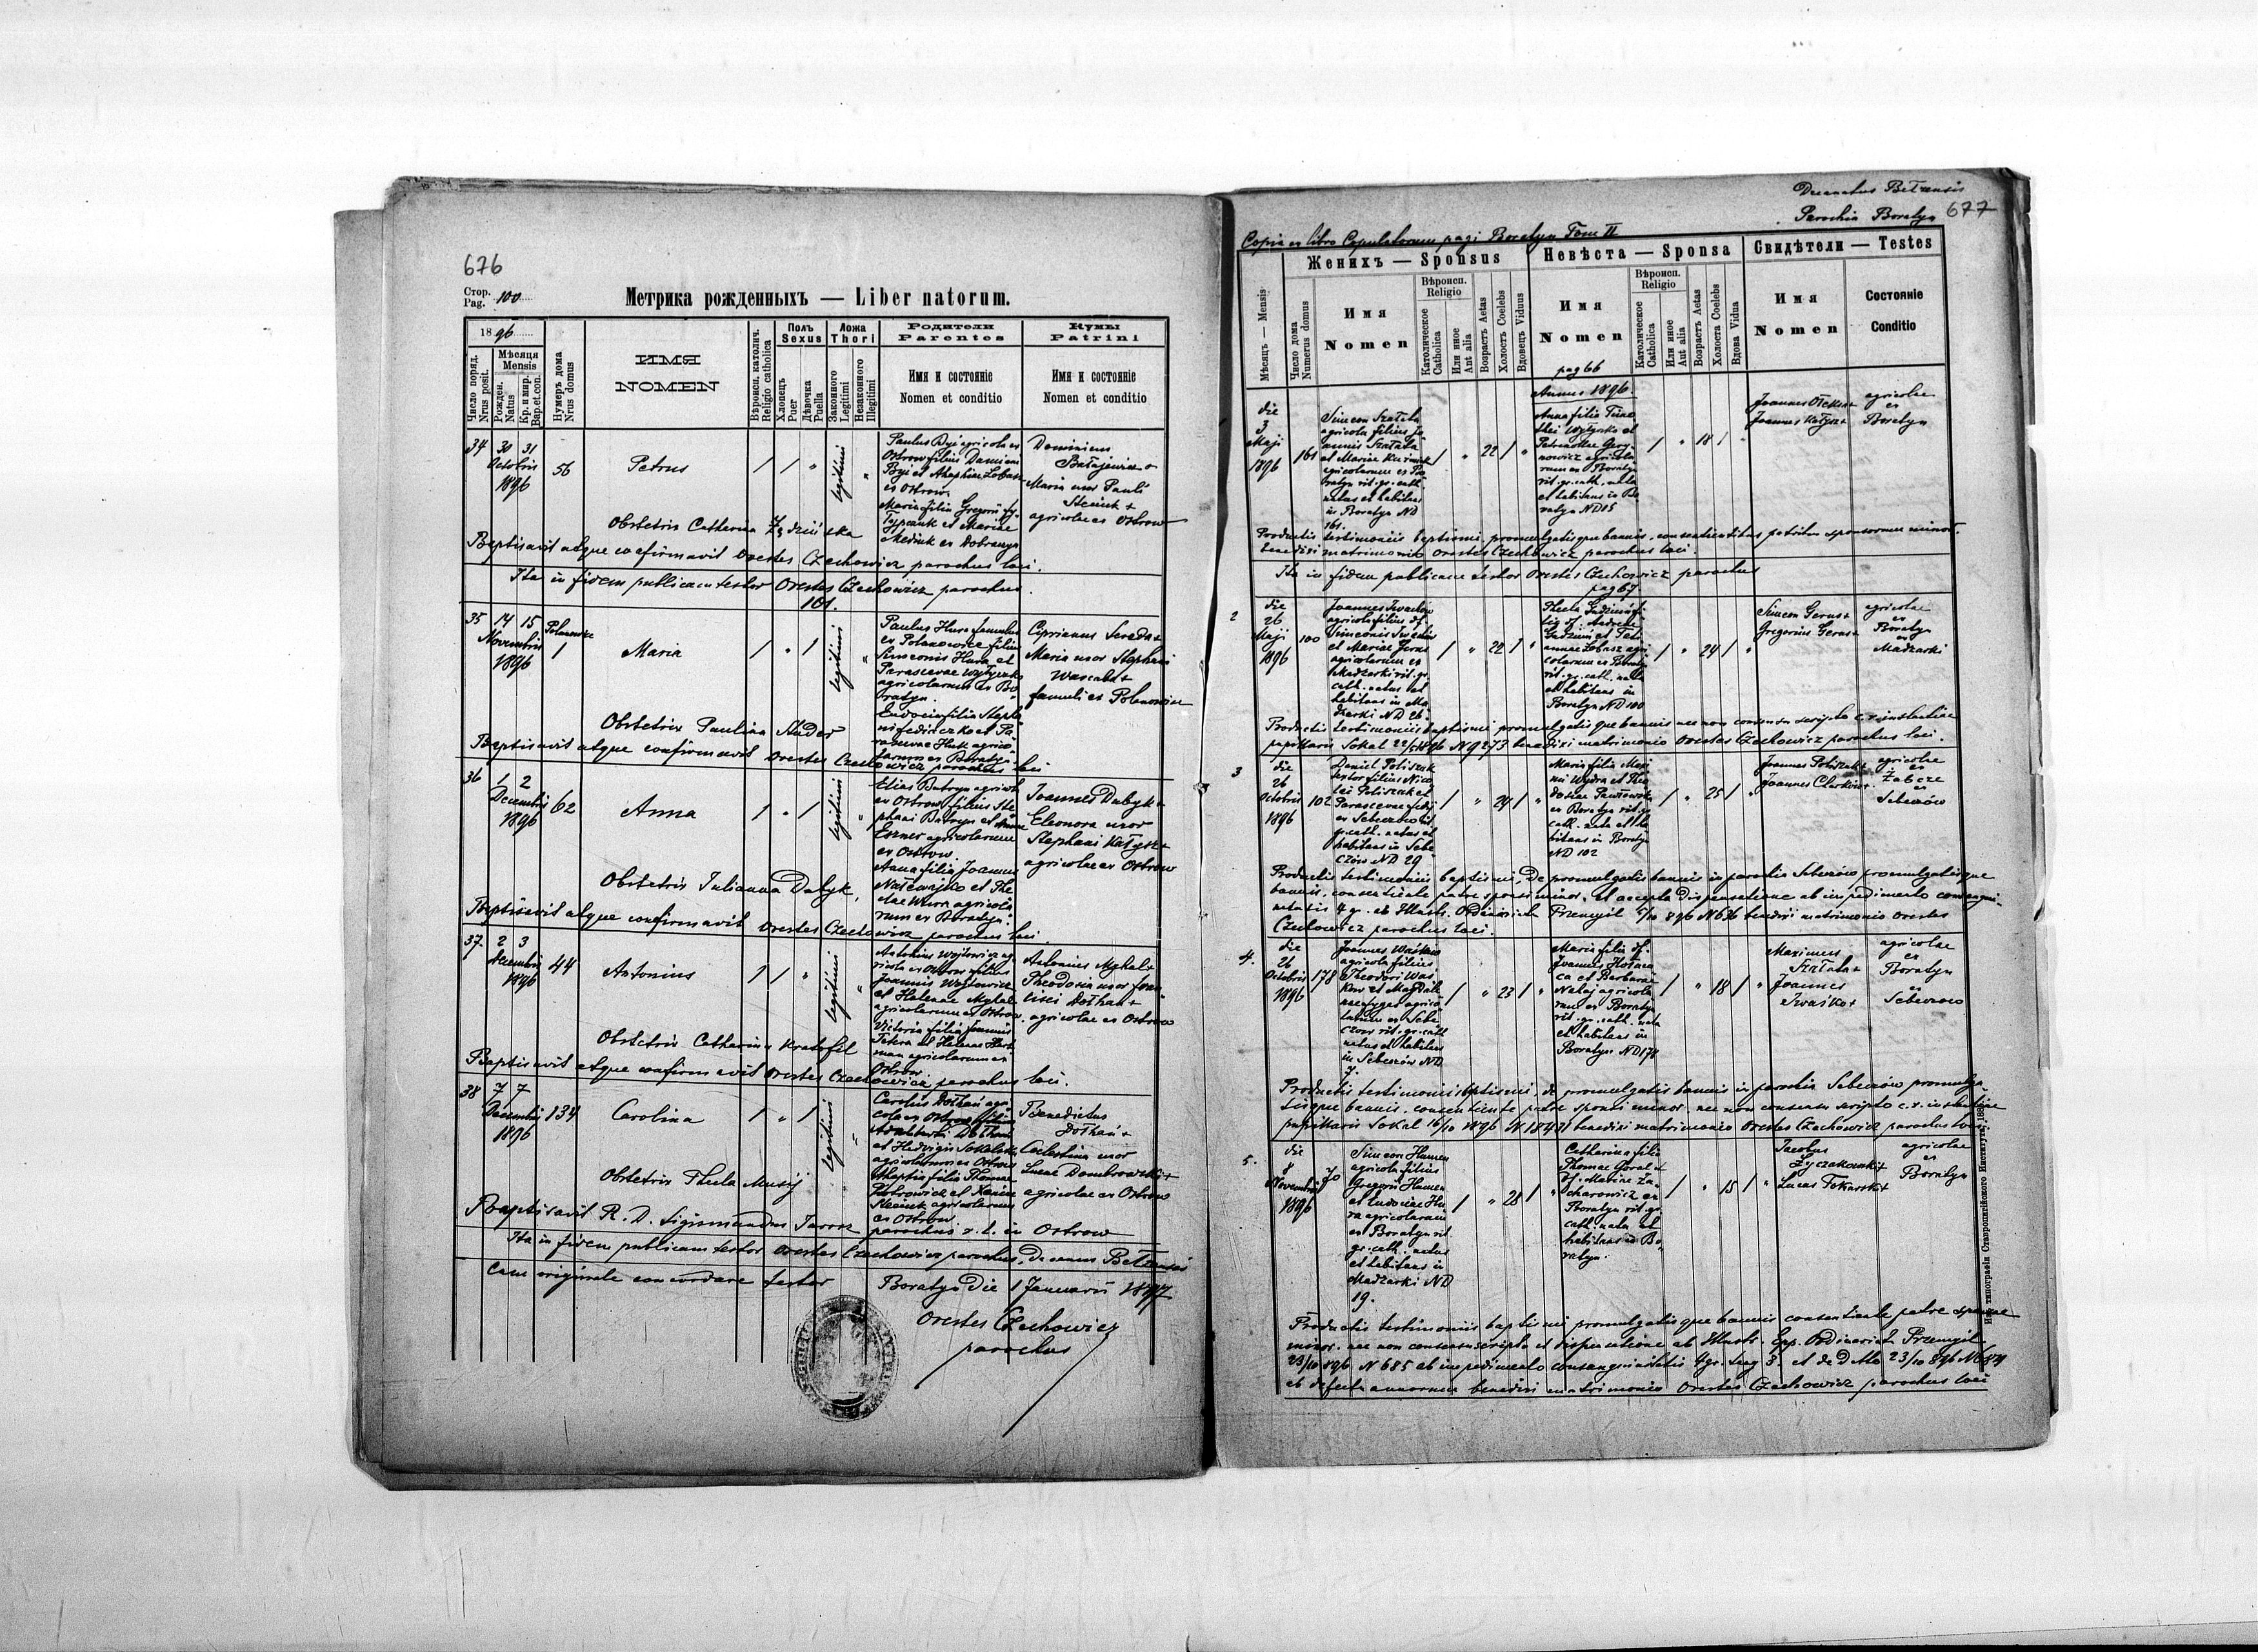 676
Стор. Pag. 100
Метрика рожденныхъ — Liber natorum.
1896
Число поряд. Nrus posit.
Мѣсяця Mensis
Рожден. Natus
Кр. и мир. Bap. et con.
Нумеръ дома Nrus domus
ИМЯ
NOMEN
Вѣроисп. католич. Religio catholica
Полъ Sexus
Хлопецъ Puer
Дѣвочка Puella
Ложа Thori
Законного Legitimi
Незаконного Illegitimi
Родители
Parentes
Имя и состояніе
Nomen et conditio
Кумы
Patrini
Имя и состояніе
Nomen et conditio
34 30 31 Octobris 1896 56 Petrus legitimi
Paulus Byś agricola ex
Ostrow filius Damiani
ex Ostrow
Maria filia Gregorii
et Mariae
Dominicus
Maria uxor Pauli
agricolae ex Ostrow
Obstetrix Catharina
Baptisavit atque confirmavit Orestes Czechowicz parochus loci.
Ita in fidem publicam testor Orestes Czechowicz parochus.
101.
35 14 15 Novembris 1896 Polanowice 1 Maria legitimi
Paulus Hura famulus
ex Polanowice filius
Simeonis Hura et
Parascevae Wojtyczko
agricolarum ex Bo
ratyn.
Eudocia filia Stepha
ni Fedirczko et Pa
rascevae Huk agrico
larum ex Boratyn.
Ciprianus Sereda +
Maria uxor Stephani
famuli ex Polanowice
Obstetrix Paulina
Baptisavit atque confirmavit Orestes Czechowicz parochus loci
36 1 2 Decembris 1896 62 Anna legitimi
Elias Batryn agricola
ex Ostrow filius Ste
phani Batryn et Annae
agricolarum
ex Ostrow.
Anna filia Joannis
et The
clae Wura agricola
rum ex Boratyn.
Joannes Dabyk +
Eleonora uxor
Stephani Kałysz +
agricolae ex Ostrow
Obstetrix Julianna Dabyk.
Baptisavit atque confirmavit Orestes Czechowicz parochus loci.
37. 2 3 Decembris 1896 44 Antonius legitimi
Antonius Wojtowicz ag
ricola ex Ostrow filius
Joannis Wojtowicz
et Helenae Myhal
agricolarum ex Ostrow.
Victoria filia Joannis
et Helenae Hart
man agricolarum ex
Ostrow.
Antonius Myhal +
Theodosia uxor
Dołhan +
agricolae ex Ostrow
Obstetrix Catharina Kratofil
Baptisavit atque confirmavit Orestes Czechowicz parochus loci.
38 7 7 Decembris 1896 134 Carolina legitimi
Carolus Dołhań agri
cola ex Ostrow filius
Adalberti Dołhań
et Hedvigis
agricolarum ex Ostrow
filia Thomae
Piotrowicz et Xeniae
agricolarum
ex Ostrow
Benedictus
Dołhań +
Celestina uxor
Lucae Dombrowski +
agricolae ex Ostrow
Obstetrix Thecla Musij
Baptisavit R. D. Sigismundus Jarosz parochus r. l. in Ostrow
Ita in fidem publicam testor Orestes Czechowicz parochus, Decanus Bełzensis
Cum originale concordare testor Boratyn Die 1 Januarii 1897.
Orestes Czechowicz
parochus
Decanatus Bełzensis
Parochia Boratyn
677
Copia ex libro Copulatorum pagi Boratyn Tom II
Мѣсяцъ — Mensis
Женихъ — Sponsus
Число дома Numerus domus
Имя
Nomen
Вѣроисп. Religio
Католическое Catholica
Или иное Aut alia
Возрастъ Aetas
Холостъ Coelebs
Вдовецъ Viduus
Невѣста — Sponsa
Имя
Nomen
pag 66
Вѣроисп. Religio
Католическое Catholica
Или иное Aut alia
Возрастъ Aetas
Холоста Coelebs
Вдова Vidua
Свидѣтели — Testes
Имя
Nomen
Состояніе
Conditio
Annus 1896.
die 3 Maji 1896 161
Simeon Szałała
agricola filius Jo
annis Szałała
et Mariae
agricolarum ex Bo
ratyn rit. gr. cath.
natus et habitans
in Boratyn ND
161.
22
Anna filia Timo
thei Wojtyczko et
nowicz agricola
rum ex Boratyn
rit. gr. cath. nata
et habitans in Bo
ratyn ND 15
18
Joannes
Joannes Kałysz +
agricolae
ex
Boratyn
Productis testimoniis baptismi, promulgatisque bannis, consentientibus patribus sponsorum minor.
benedixi matrimonio Orestes Czechowicz parochus loci.
Ita in fidem publicam testor Orestes Czechowicz parochus
pag 67.
2 die 26 Maji 1896 100
Joannes Iwachów
agricola filius df.
Simeonis Iwachów
et Mariae Gerus
agricolarum ex
Madziarki rit. gr.
cath. natus et
habitans in Ma
dziarki ND 26.
22
Thecla Gudzim fi
lia df. Andreae
Gudzim et Tati
annae Łobasz agri
colarum ex Boratyn
rit. gr. cath. nata
et habitans in
Boratyn ND 100
24
Simeon Gerus +
Gregorius Gerus +
agricolae
ex
Boratyn
ex
Madziarki
Productis testimoniis baptismi promulgatisque bannis nec non consensu scripto c. r. instantiae
pupillaris Sokal 22/5 1896 N 9273 benedixi matrimonio Orestes Czechowicz parochus loci.
3 die 26 Octobris 1896 102
Daniel Poliszuk
textor filius Nico
lai Poliszuk et
Parascevae
ex Sebeczów rit.
gr. cath. natus et
habitans in Sebe
czów ND 29
24
Maria filia Maxi
mi Wydra et The
dosiae
ex Boratyn rit. gr.
cath. nata et ha
bitans in Boratyn
ND 102
25
Joannes Poliszuk +
Joannes
agricolae
ex
Żabcze
ex
Sebeczów
Productis testimoniis baptismi, de promulgatis bannis in parochia Sebeczów promulgatisque
bannis, consentiente patre sponsi minor. et accepta dispensatione ab impedimento consangui
nitatis 4 gr. ab Illustr. Ordinariatu Przemysl 896 N 636 benedixi matrimonio Orestes
Czechowicz parochus loci.
4. die 26 Octobris 1896 178
Joannes Waśkow
agricola filius
Theodori Was
kow et Magdale
nae agrico
larum ex Sebe
czow rit. gr. cath
natus et habitans
in Sebeczów ND
7.
23
Maria filia df.
Joannis
ca et Barbarae
agricola
rum ex Boratyn
rit. gr. cath. nata
et habitans in
Boratyn ND 178
18
Maximus
Szałała +
Joannes
Iwaśko +
agricolae
ex
Boratyn
ex
Sebeczow
Productis testimoniis baptismi, de promulgatis bannis in parochia Sebeczów promulga
tisque bannis, consentiente patre sponsi minor. nec non consensu scripto c. r. instantiae
pupillaris Sokal 16/10 1896 N 18431 benedixi matrimonio Orestes Czechowicz parochus loci.
5. die 8 Novembris 1896 70
Simeon Humen
agricola filius
Gregorii Humen
et Eudociae Hu
ra agricolarum
ex Boratyn rit.
gr. cath. natus
et habitans in
Madziarki ND
19.
28
Catharina filia
Thomae Goral et
df. Mariae Za
charowicz ex
Boratyn rit. gr.
cath. nata et
habitans in Bo
ratyn.
15
Jacobus
Łyczakowski +
Lucas Tokarski +
agricolae
ex
Boratyn
Productis testimoniis baptismi promulgatisque bannis consentiente patre sponsae
minor. nec non consensu scripto et dispensatione ab Illustr. Epp. Ordinariat. Przemysl
23/10 896 N 685 ab impedimento consanguinitatis 4 gr. tang 3. et de Dtto 23/10 896 N 684
ab defectu annorum benedixi matrimonio Orestes Czechowicz parochus loci
Изъ типографіи Ставропигійского Института, 188